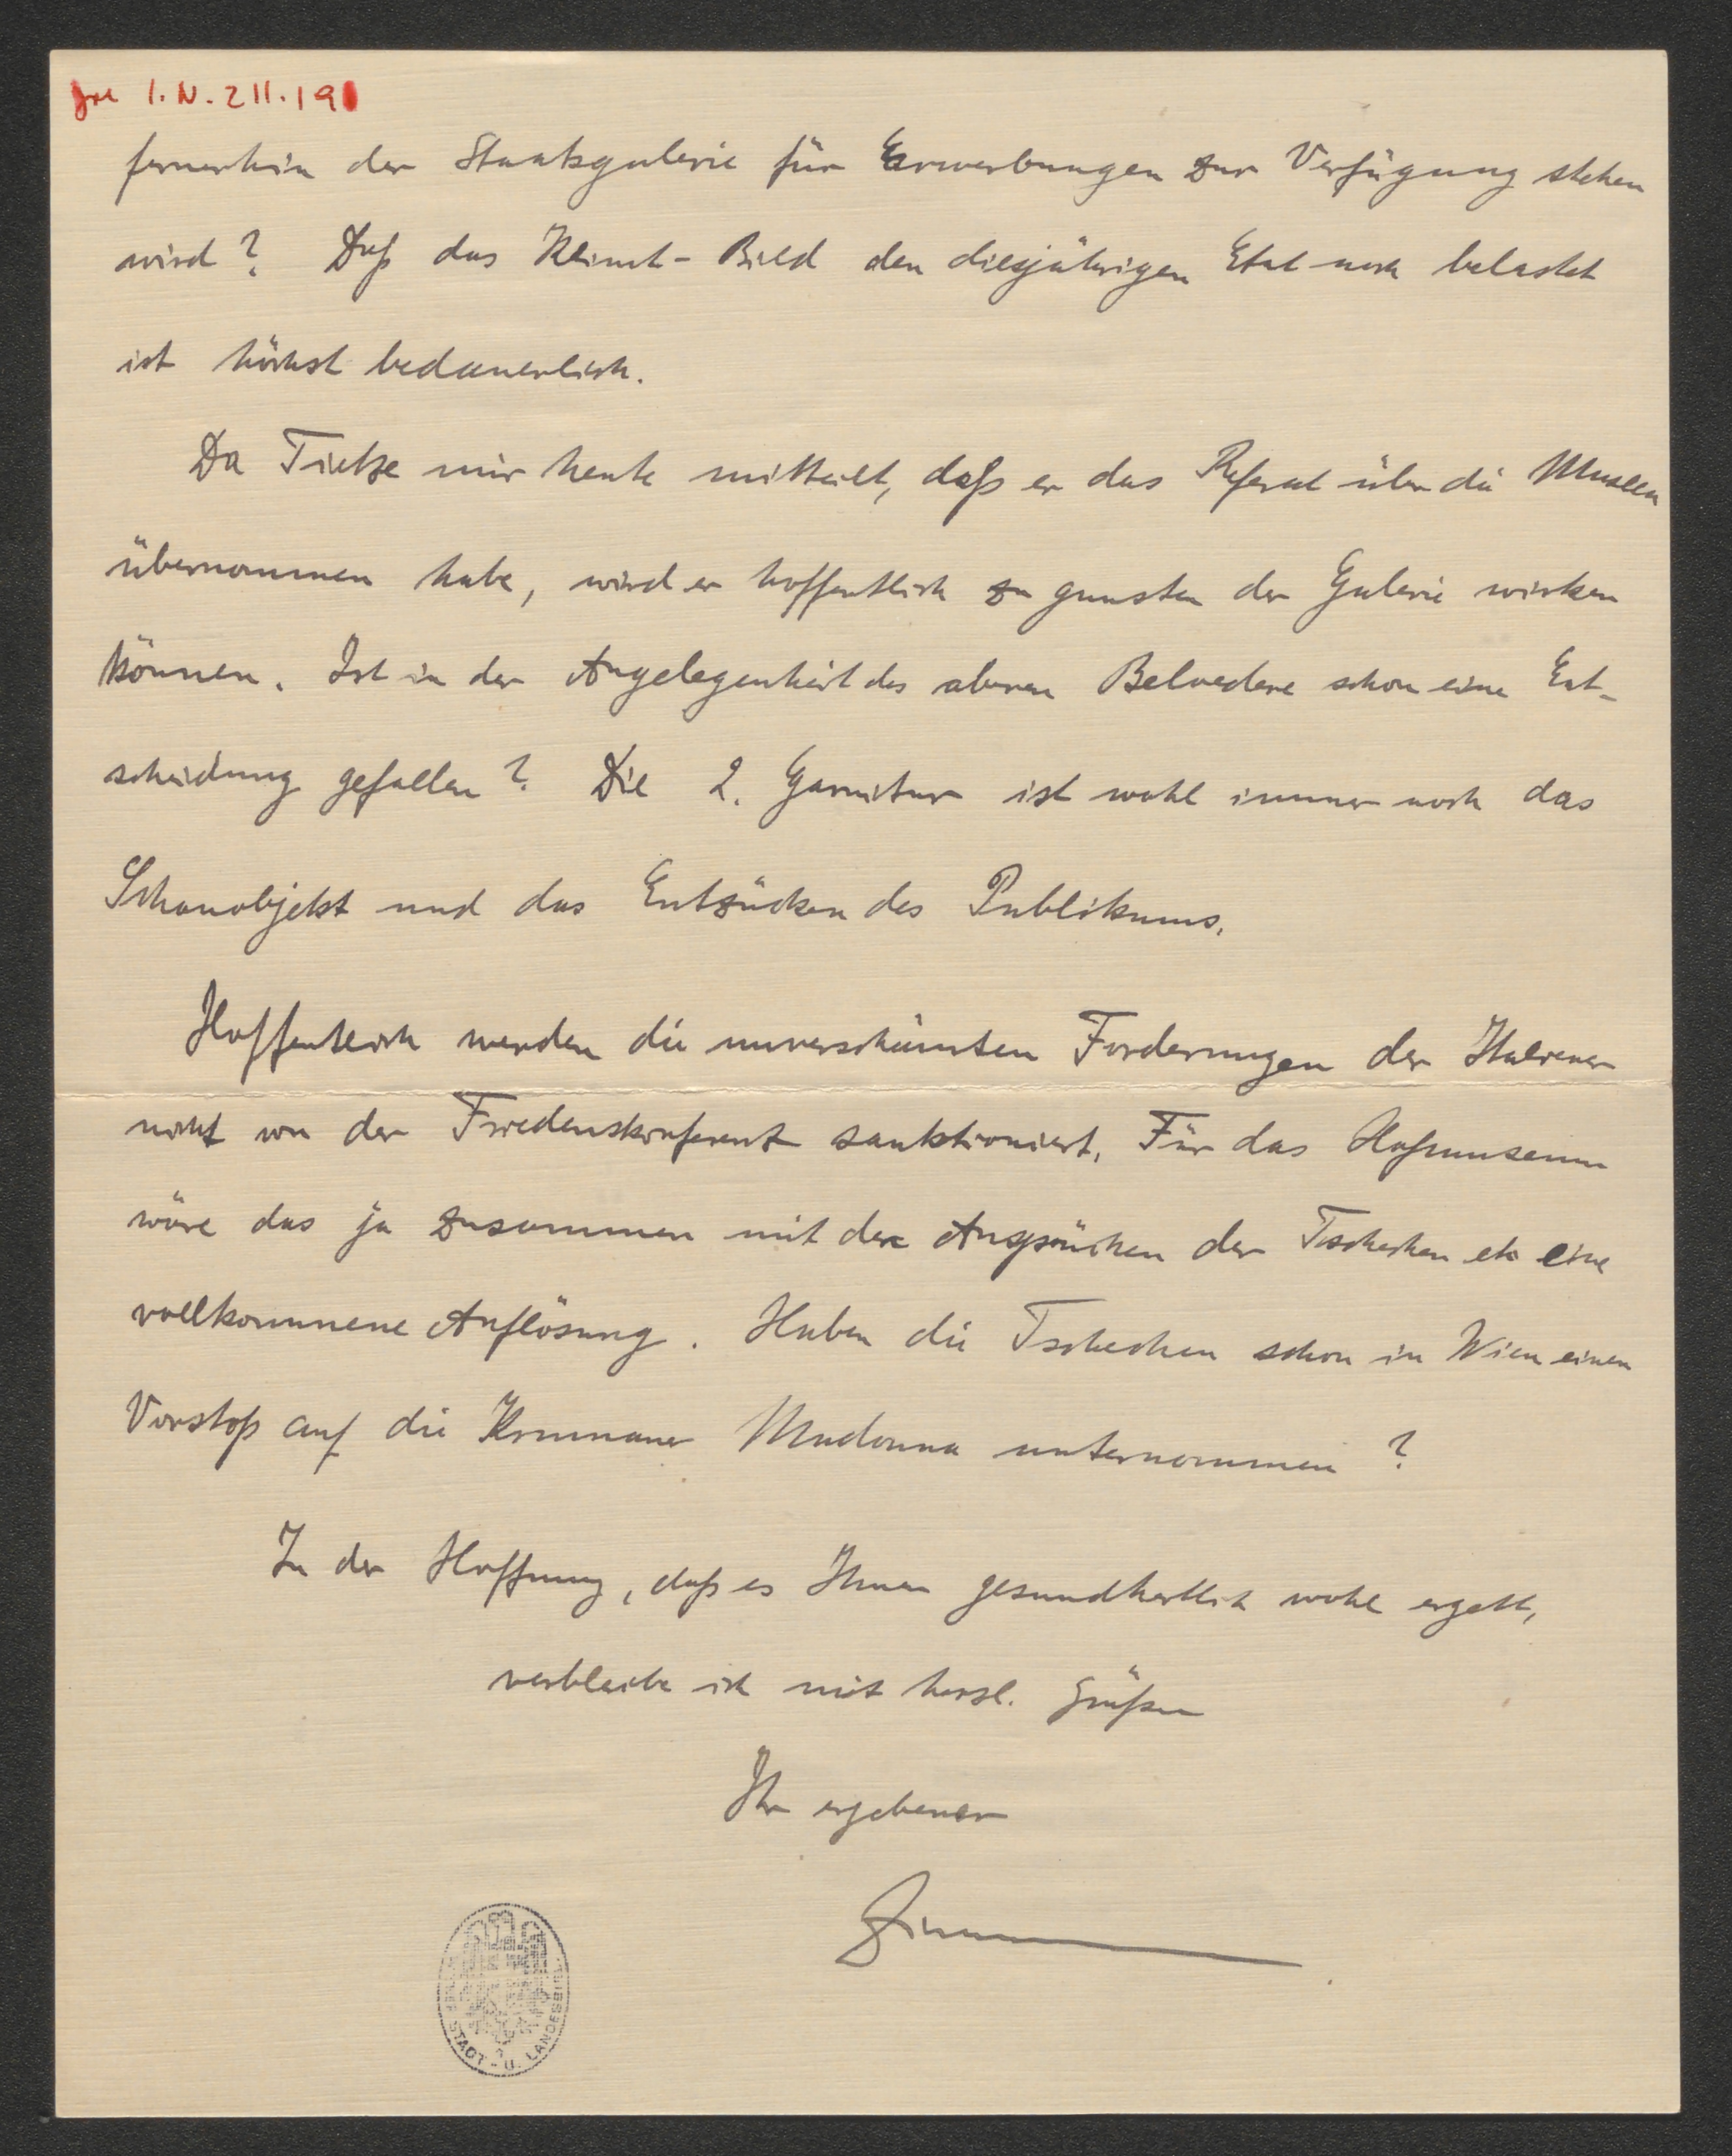 I. N. 211.19
fernerhin der Staatsgalerie für Erwerbungen zur Verfügung stehen
wird? Daß das Klimt-Bild den diesjährigen Etat noch belastet
ist höchst bedauerlich.
Da Tietze mir heute mitteilt, daß er das Referat über die Museen
übernommen habe, wird er hoffentlich zu gunsten der Galerie wirken
können. Ist in der Angelegenheit des oberen Belvedere schon eine Ent-
scheidung gefallen? Die 2. Garnitur ist wohl immer noch das
Schauobjekt und das Entzücken des Publikums.
Hoffentlich werden die unverschämten Forderungen der Italiener
nicht von der Friedenskonferenz sanktioniert. Für das Hofmuseum
wäre das ja zusammen mit den Ansprüchen der Tschechen etc eine
vollkommene Auflösung. Haben die Tschechen schon in Wien einen
Vorstoß auf die Krumauer Madonna unternommen?
In der Hoffnung, daß es Ihnen gesundheitlich wohl ergeht,
verbleibe ich mit herzl. Grüßen
Ihr ergebener
STADT- U. LANDESBIBL.